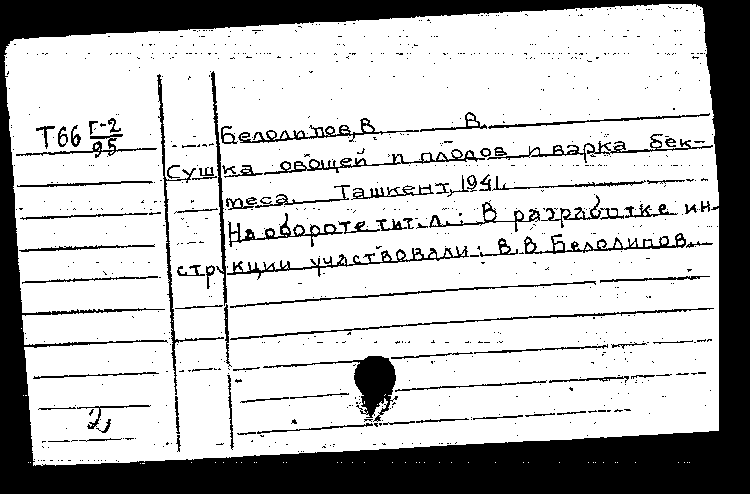 Т66 Г-2
95
Белолипов, В. В.
Сушка овощей и плодов и варка бек-
меса. Ташкент, 1941.
На обороте тит. л.: В разработке ин-
струкции участвовали: В. В. Белолипов.
2,